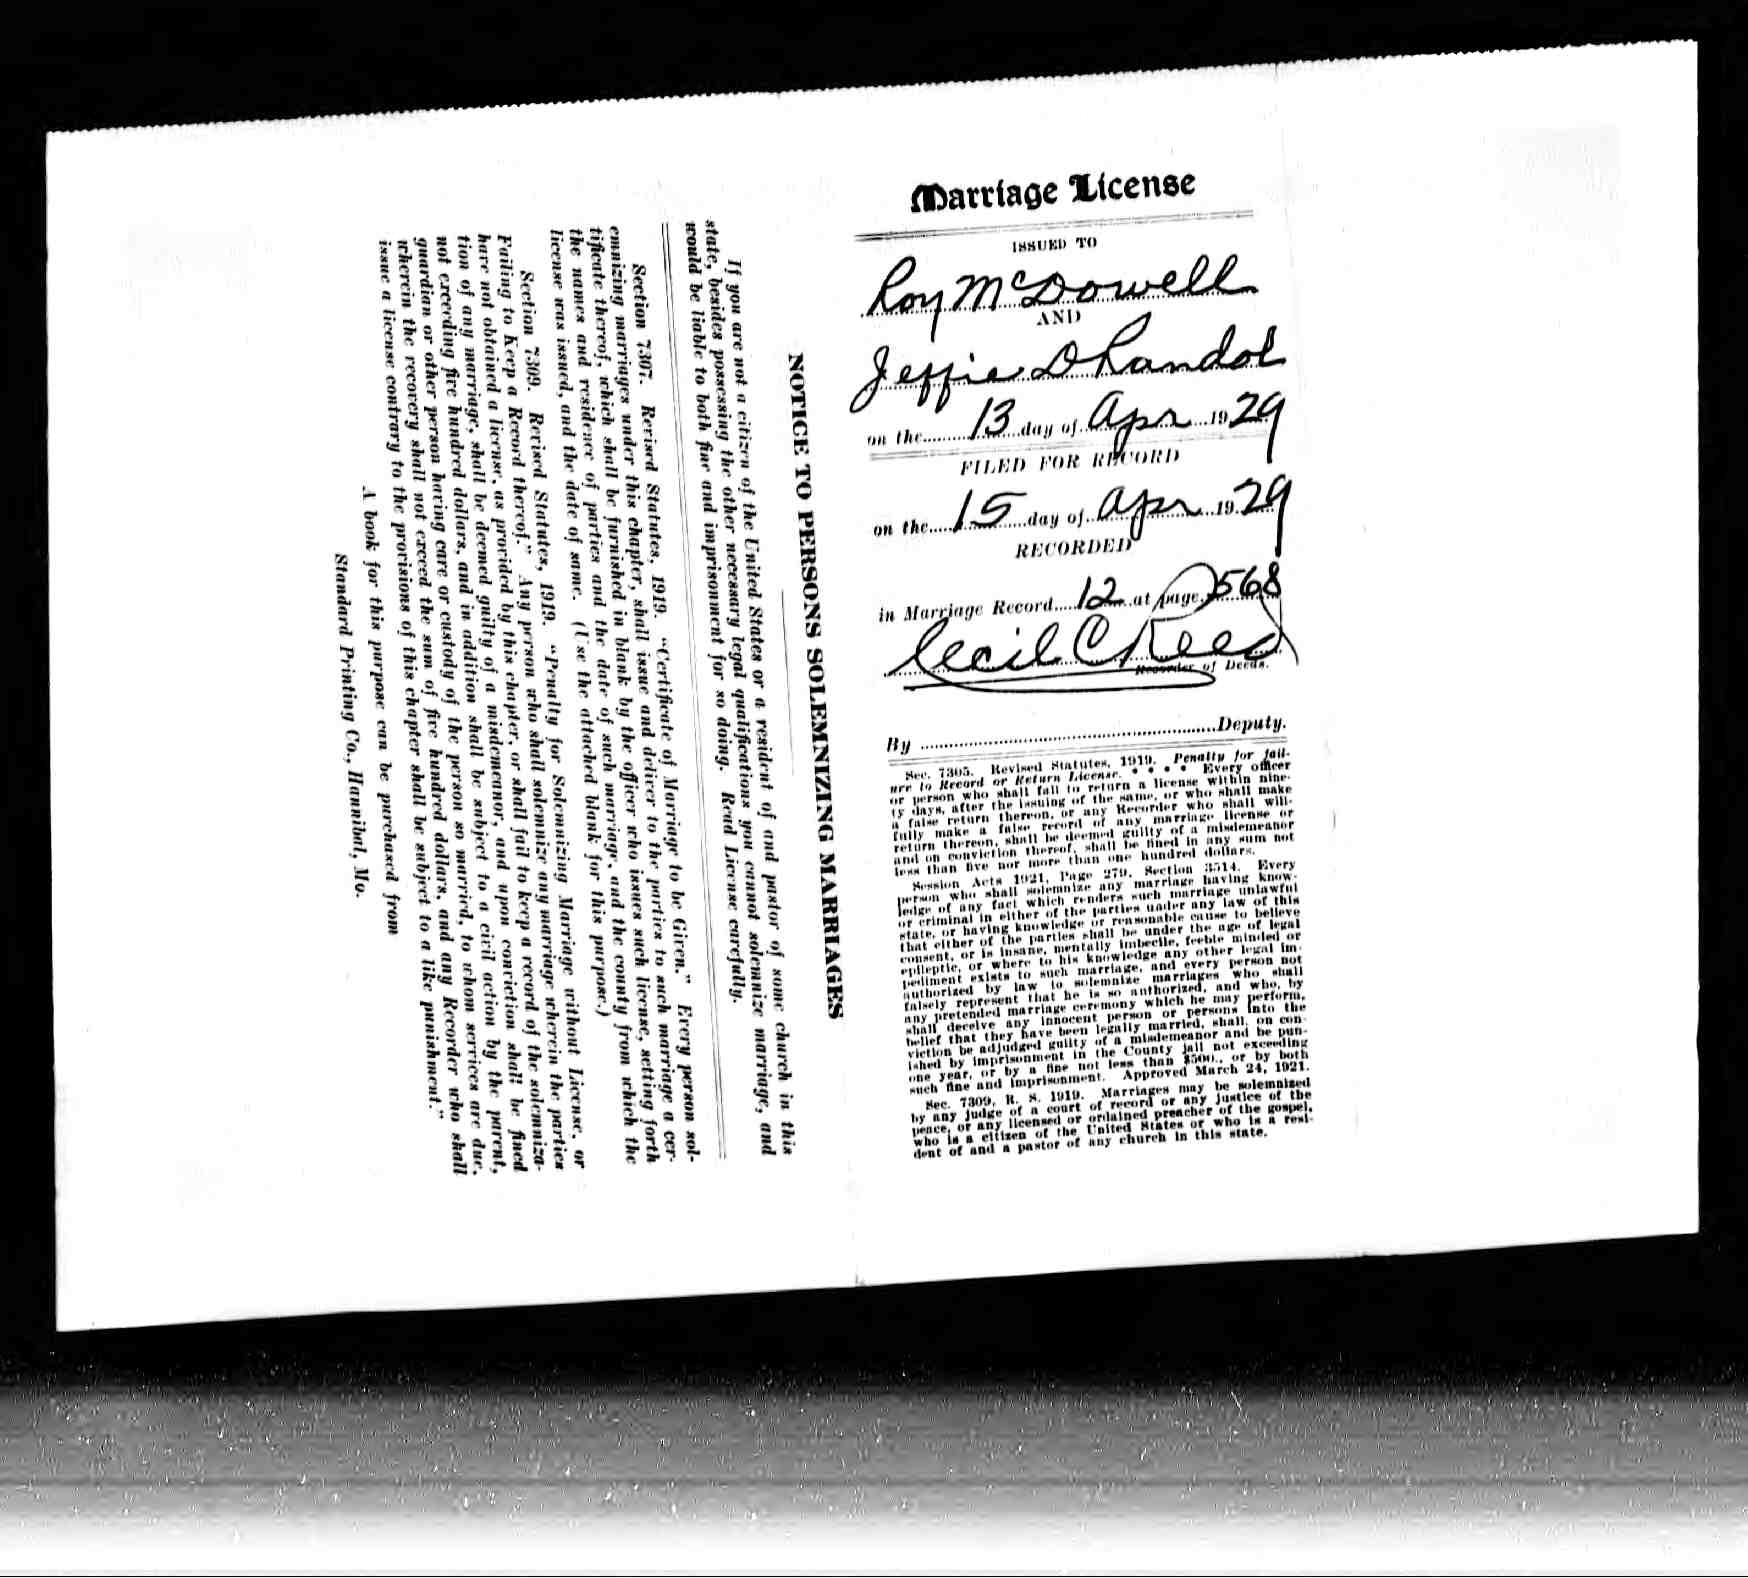 Marriage License
ISSUED TO
Roy McDowell
AND
Jeffie D Randol
on the 13 day of Apr 1929
FILED FOR RECORD
on the 15 day of Apr 1929
RECORDED
in Marriage Record 12 at page 568
Cecil C Reed
Recorder of Deeds.
By ........ Deputy.
Sec. 7305. Revised Statutes, 1919. Penalty for fail-
ure to Record or Return License. * * * * Every officer
or person who shall fail to return a license within nine-
ty days, after the issuing of the same, or who shall make
a false return thereon, or any Recorder who shall will-
fully make a false record of any marriage license or
return thereon, shall be deemed guilty of a misdemeanor
and on conviction thereof, shall be fined in any sum not
less than five nor more than one hundred dollars.
Session Acts 1921, Page 279, Section 3514. Every
person who shall solemnize any marriage having know-
ledge of any fact which renders such marriage unlawful
or criminal in either of the parties under any law of this
state, or having knowledge or reasonable cause to believe
that either of the parties shall be under the age of legal
consent, or is insane, mentally imbecile, feeble minded or
epileptic, or where to his knowledge any other legal im-
pediment exists to such marriage, and every person not
authorized by law to solemnize marriages who shall
falsely represent that he is so authorized, and who, by
any pretended marriage ceremony which he may perform,
shall deceive any innocent person or persons into the
belief that they have been legally married, shall, on con-
viction be adjudged guilty of a misdemeanor and be pun-
ished by imprisonment in the County jail not exceeding
one year, or by a fine not less than $500., or by both
such fine and imprisonment. Approved March 24, 1921.
Sec. 7309, R. S. 1919. Marriages may be solemnized
by any judge of a court of record or any justice of the
peace, or any licensed or ordained preacher of the gospel,
who is a citizen of the United States or who is a resi-
dent of and a pastor of any church in this state.
NOTICE TO PERSONS SOLEMNIZING MARRIAGES
If you are not a citizen of the United States or a resident of and pastor of some church in this
state, besides possessing the other necessary legal qualifications you cannot solemnize marriage, and
would be liable to both fine and imprisonment for so doing. Read License carefully.
Section 7307. Revised Statutes, 1919. "Certificate of Marriage to be Given." Every person sol-
emnizing marriages under this chapter, shall issue and deliver to the parties to such marriage a cer-
tificate thereof, which shall be furnished in blank by the officer who issues such license, setting forth
the names and residence of parties and the date of such marriage, and the county from which the
license was issued, and the date of same. (Use the attached blank for this purpose.)
Section 7309. Revised Statutes, 1919. "Penalty for Solemnizing Marriage without License, or
Failing to Keep a Record thereof." Any person who shall solemnize any marriage wherein the parties
have not obtained a license, as provided by this chapter, or shall fail to keep a record of the solemniza-
tion of any marriage, shall be deemed guilty of a misdemeanor, and upon conviction shall be fined
not exceeding five hundred dollars, and in addition shall be subject to a civil action by the parent,
guardian or other person having care or custody of the person so married, to whom services are due,
wherein the recovery shall not exceed the sum of five hundred dollars, and any Recorder who shall
issue a license contrary to the provisions of this chapter shall be subject to a like punishment."
A book for this purpose can be purchased from
Standard Printing Co., Hannibal, Mo.